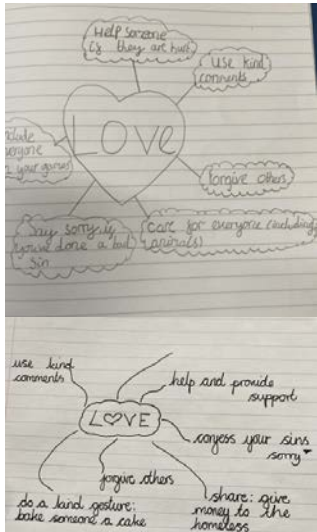 Help someone
if they are hurt
use kind
comments
LOVE
include
everyone
in your games
forgive others
Say sorry if
you've done a bad
sin
care for everyone (including
animals)
use kind
comments
help and provide
support
LOVE
confess your sins
sorry
forgive others
do a kind gesture:
bake someone a cake
share: give
money to the
homeless